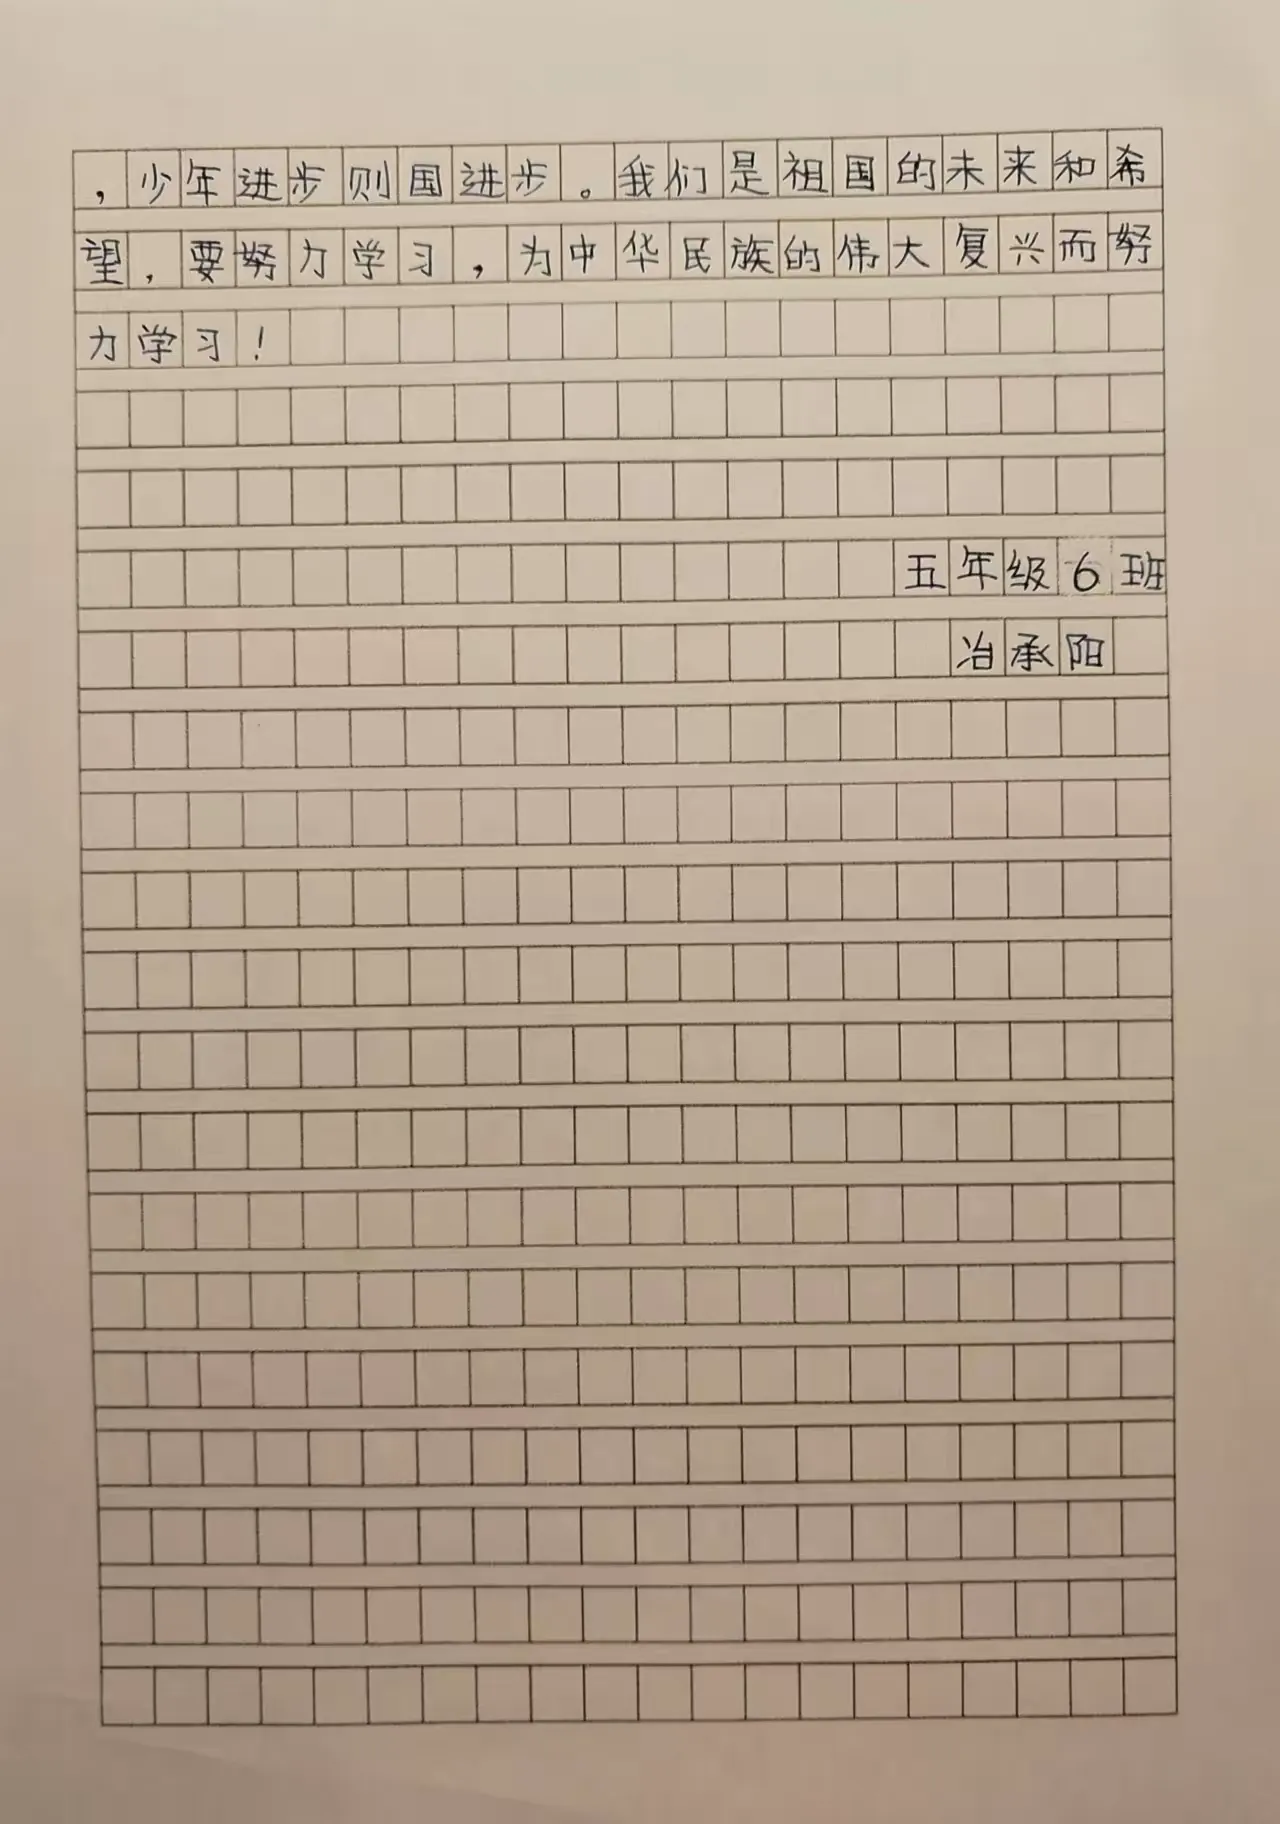 ，少年进步则国进步。我们是祖国的未来和希
望，要努力学习，为中华民族的伟大复兴而努
力学习！
五年级6班
冶承阳